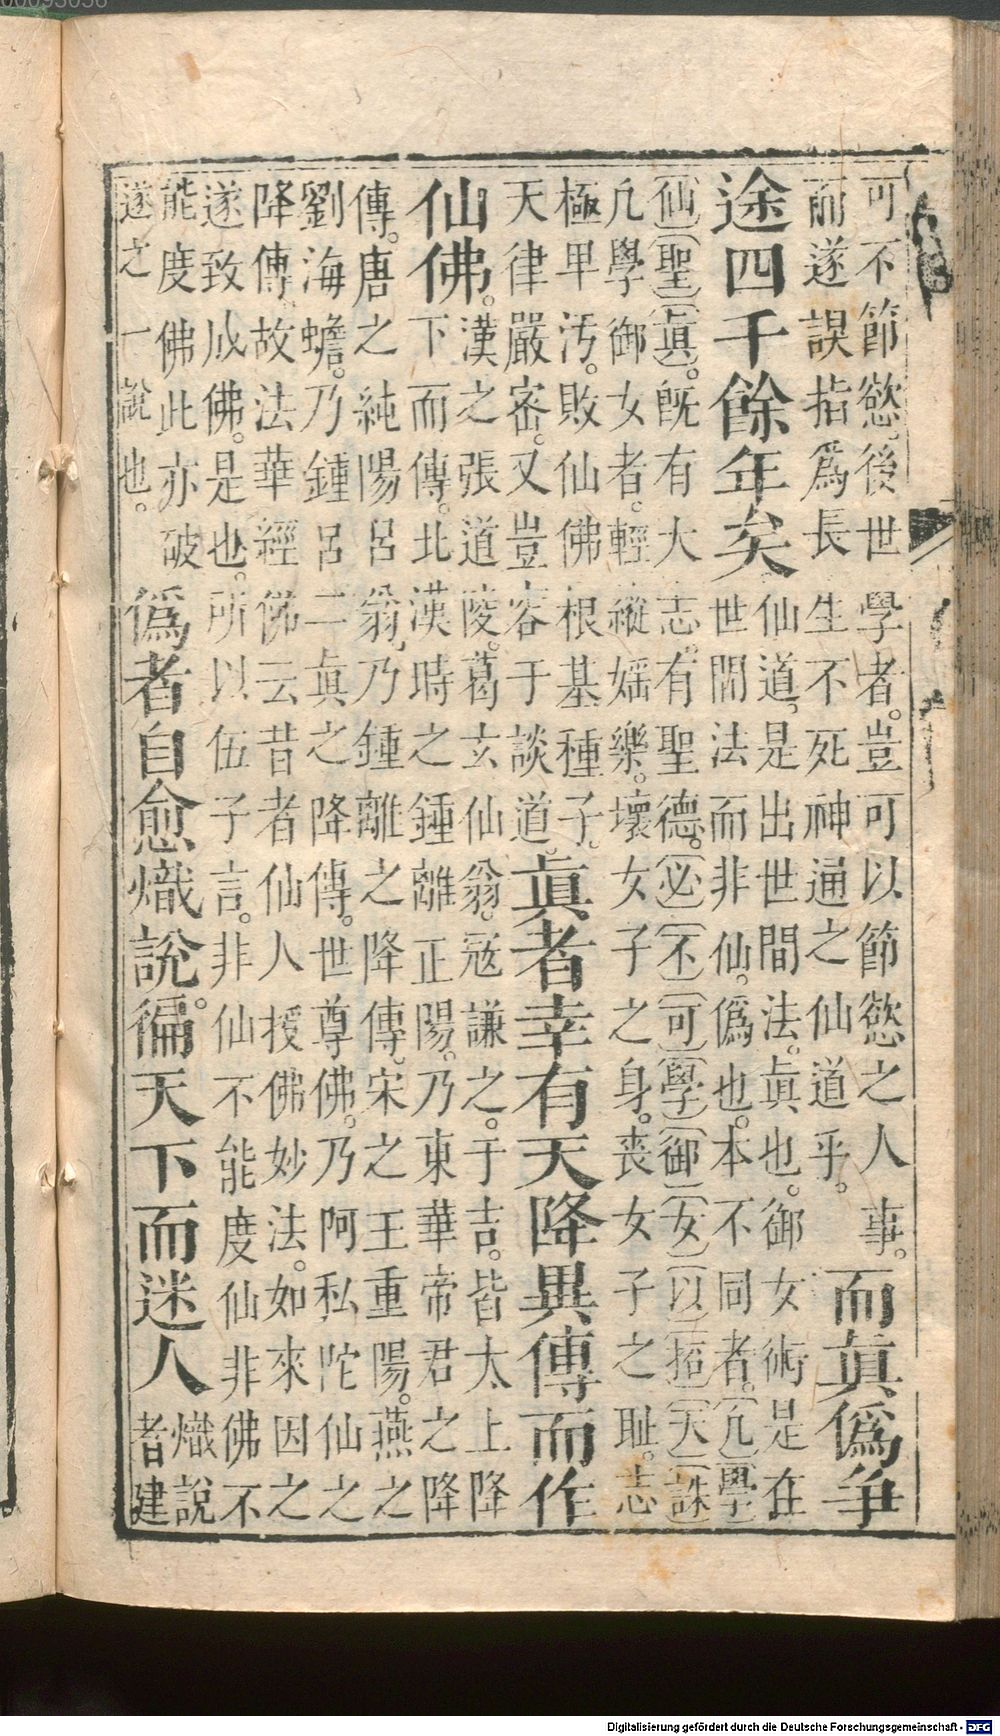 可不節慾。後世學者。豈可以節慾之人事。
而遂誤指爲長生不死神通之仙道乎。
而眞僞爭
途四千餘年矣
仙道。是出世間法。眞也。御女術是在
世間法而非仙。僞也。本不同者。凡學
仙聖眞。旣有大志。有聖德。必不可學御女以招天誅
凡學御女者。輕縱婬樂。壞女子之身。喪女子之恥。志
極卑汚。敗仙佛根基種子。
天律嚴密。又豈容于談道。
眞者幸有天降異傳而作
仙佛。
漢之張道陵。葛玄仙翁。寇謙之。于吉。皆太上降
下而傳。北漢時之鍾離正陽。乃東華帝君之降
傳。唐之純陽呂翁。乃鍾離之降傳。宋之王重陽。燕之
劉海蟾。乃鍾呂二眞之降傳。世尊佛。乃阿私陀仙之
降傳。故法華經佛云昔者仙人授佛妙法。如來因之
遂致成佛。是也。所以伍子言。非仙不能度仙非佛不
能度佛此亦破
遂之一說也。
僞者自愈熾說。徧天下而迷人
熾說
者建
Digitalisierung gefördert durch die Deutsche Forschungsgemeinschaft - DFG